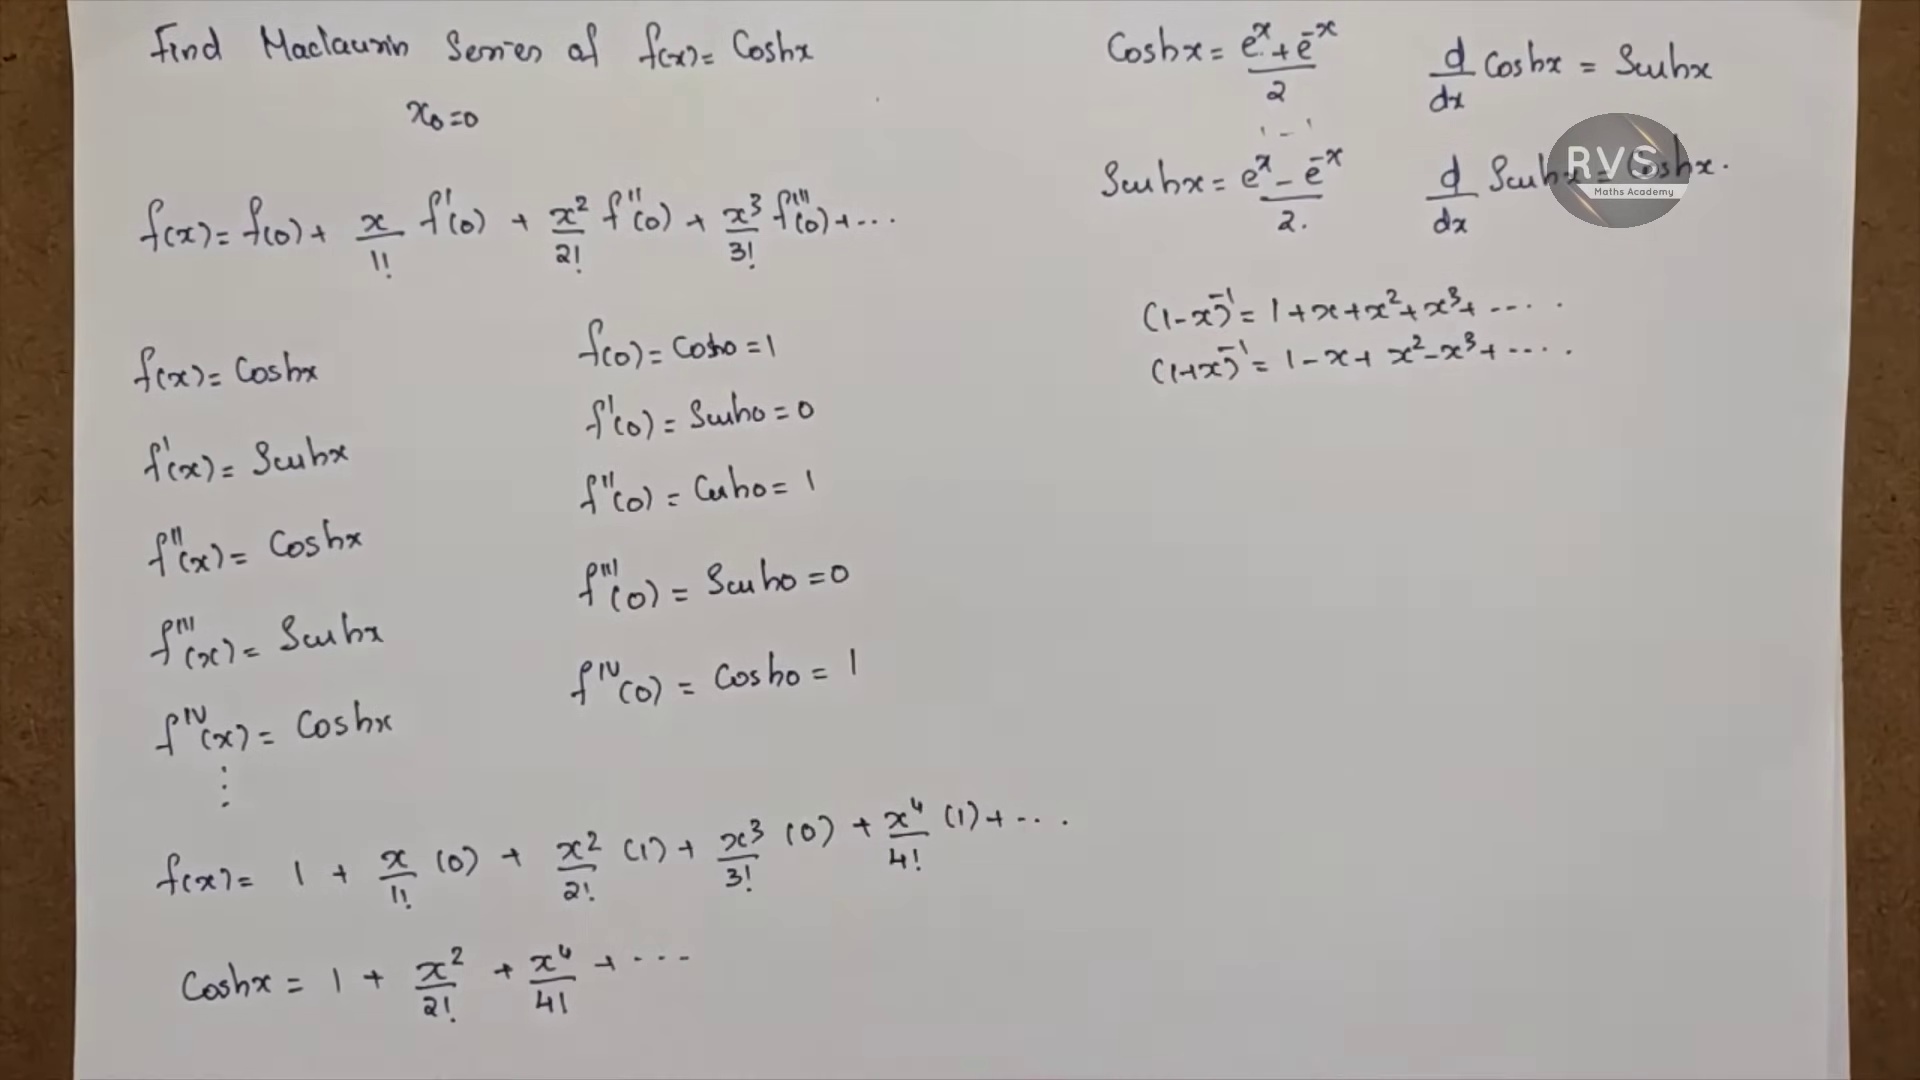 Find Maclaurin Series of f(x) = Coshx
x₀=0
f(x) = f(0) + x/1! f'(0) + x²/2! f''(0) + x³/3! f'''(0) + ...
f(x) = Coshx
f'(x) = Sinhx
f''(x) = Coshx
f'''(x) = Sinhx
f^IV(x) = Coshx
⋮
f(0) = Cosh0 = 1
f'(0) = Sinh0 = 0
f''(0) = Cosh0 = 1
f'''(0) = Sinh0 = 0
f^IV(0) = Cosh0 = 1
f(x) = 1 + x/1! (0) + x²/2! (1) + x³/3! (0) + x⁴/4! (1) + ...
Coshx = 1 + x²/2! + x⁴/4! + ...
Coshx = (e^x + e^-x)/2
d/dx Coshx = Sinhx
Sinhx = (e^x - e^-x)/2.
d/dx Sinhx = Coshx.
RVS
Maths Academy
(1-x)^-1 = 1+x+x²+x³+ .....
(1+x)^-1 = 1-x+x²-x³+ .....